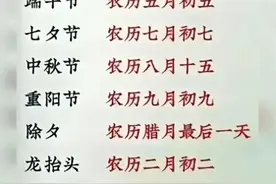 端午节 农历五月初五
七夕节 农历七月初七
中秋节 农历八月十五
重阳节 农历九月初九
除夕 农历腊月最后一天
龙抬头 农历二月初二